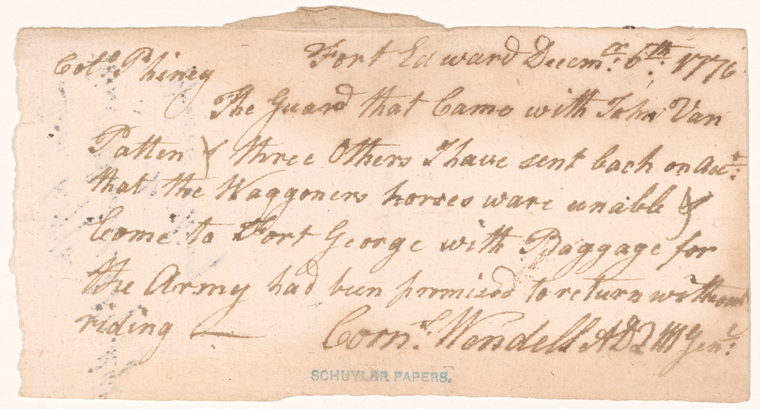 Fort Edward Decemr. 6th. 1776
Colo. Phiney
The Guard that Came with John Van
Patten & three Others I have sent back on Acct.
that the Waggoners horses ware unable &
Come to Fort George with Baggage for
the Army had been promised to return without
riding —
Corns. Wendell A D Q M Genl.
SCHUYLER PAPERS.